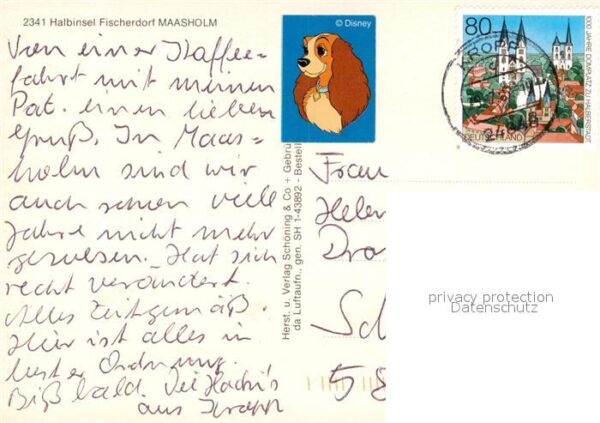 2341 Halbinsel Fischerdorf MAASHOLM
© Disney
Von einer Kaffee=
fahrt mit meinen
Pat. einen lieben
Gruß. In Maas=
holm sind wir
auch schon viele
Jahre nicht mehr
gewesen. Hat sich
recht verändert.
Alles Zeitgemäß.
Hier ist alles in
bester Ordnung.
Biß bald.
aus
Herst. u. Verlag Schöning & Co + Gebrü
da Luftaufn., gen. SH 1-43892 - Bestell
80
1000 JAHRE DOMPLATZ ZU HALBERSTADT
DEUTSCHLAND
Frau
Helen
Dra
Sch
58
privacy protection
Datenschutz